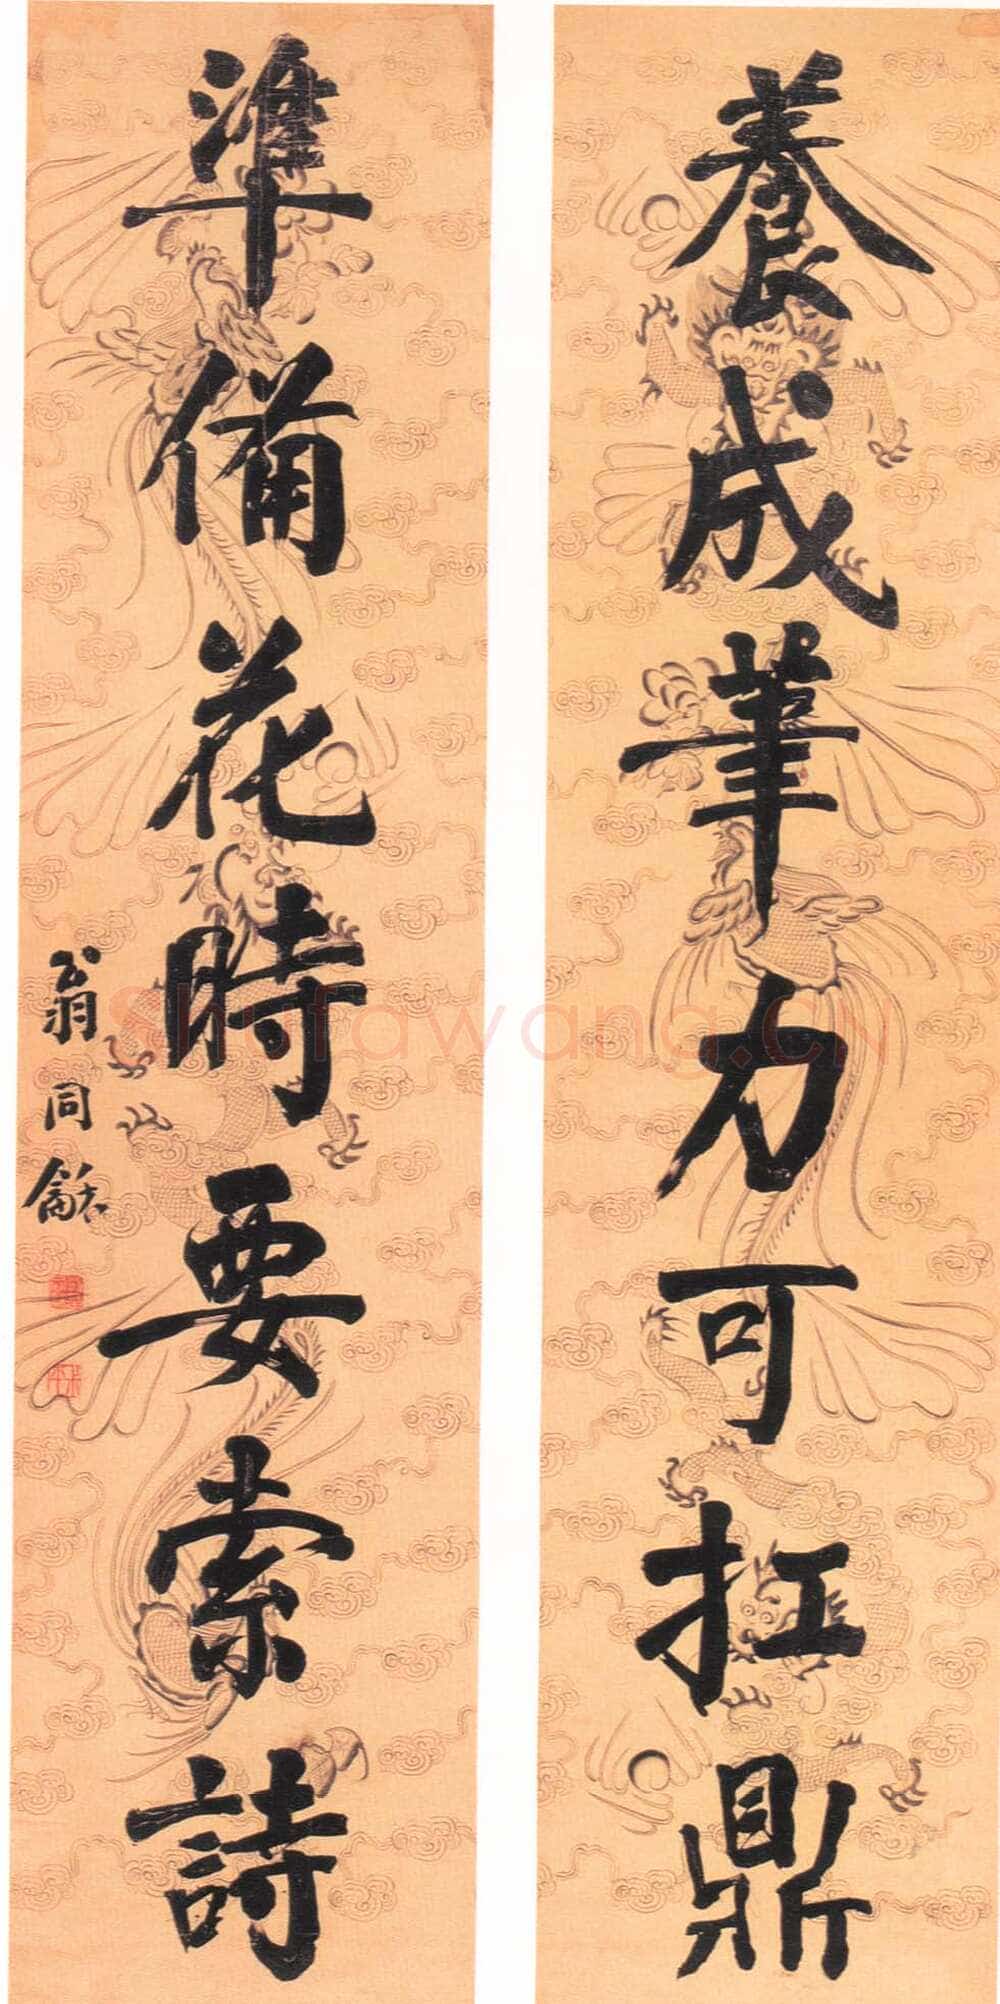 養成筆力可扛鼎
準備花時要索詩
翁同龢
Shufawang.CN